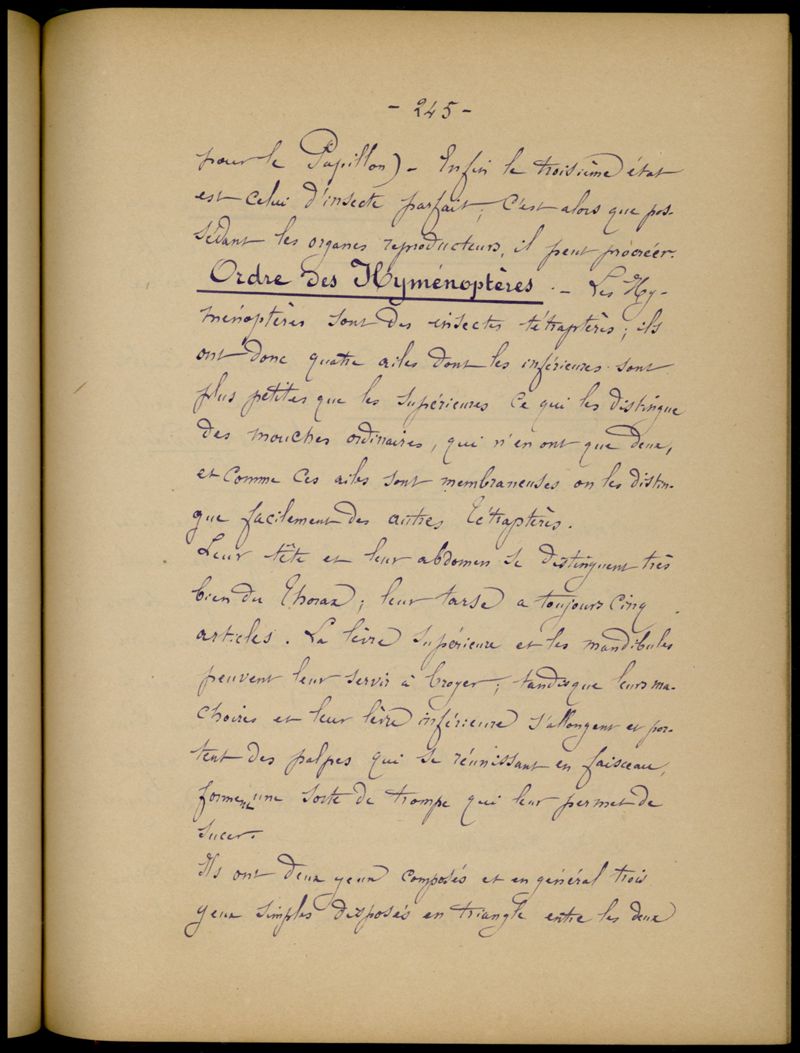 - 245 -
pour le Papillon) - Enfin le troisième état
est celui d'insecte parfait; C'est alors que pos-
sédant les organes reproducteurs, il peut procréer.
Ordre des Hyménoptères. - Les Hy-
ménoptères sont des insectes tétraptères; ils
ont donc quatre ailes dont les inférieures sont
plus petites que les supérieures ce qui les distingue
des mouches ordinaires, qui n'en ont que deux,
et comme ces ailes sont membraneuses on les distin-
gue facilement des autres tétraptères.
Leur tête et leur abdomen se distinguent très
bien du thorax; leur tarse a toujours cinq
articles. La lèvre supérieure et les mandibules
peuvent leur servir à broyer; tandis que leurs ma-
choires et leur lèvre inférieure s'allongent et por-
tent des palpes qui se réunissant en faisceau,
forment une sorte de trompe qui leur permet de
sucer.
Ils ont deux yeux composés et en général trois
yeux simples disposés en triangle entre les deux